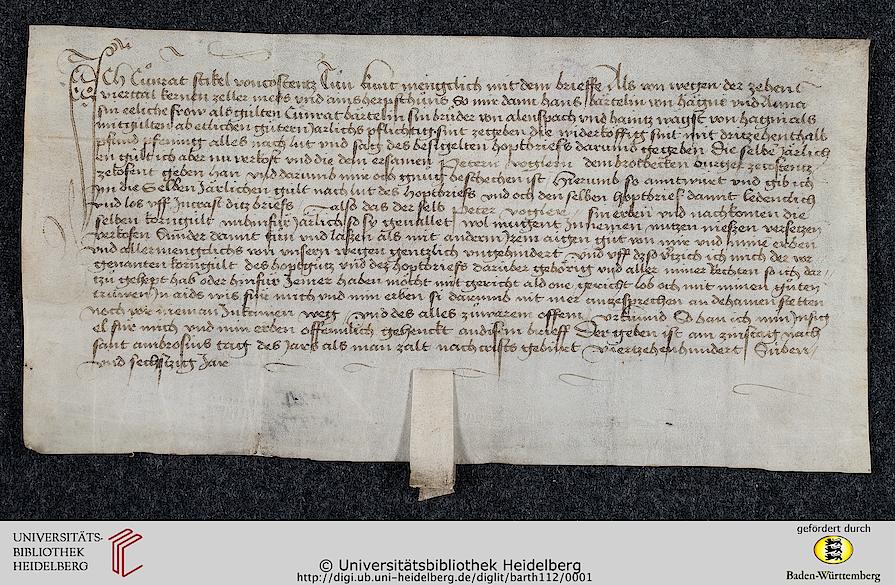 Ich Cůnrat stikel von Costentz Tůn kunt mengclich mit dem brieffe Als von wegen der zehent
viertail kernen zeller mess und ains herpschůns So mir dann hans bartelin von hågni und Anna
sin eeliche frow als gülten Cůnrat bartelin sin brůder von alenspach und haintz wagst von hagni als
mitgülten ab etlichen gůtern Jårlichs pflichtig sint ze geben die widerköffig sint mit dritzehenthalb
pfund pfenning alles nach lut und sag des besigelten hoptbriefs darumb gegeben Die selbe jårlich
en gült ich aber nu verkoft und die dem ersamen Petern voglern dem brotbecken burger ze costentz
ze kofent geben han und darumb mir och gnůg beschechen ist Hierumb so anntwurt und gib ich
im die Selben Jårlichen gült nach lut des hoptbriefs und och den selben hoptbrief damit ledenclich
und los uff In craft ditz briefs Also das der selb Peter vogler sin erben und nachkomen die
selben korngült nu hinfür Jårlich so sy gevallet wol mügent In nemen nutzen niessen versetzen
verkofen Sunder damit tůn und lassen als mit anderm Irem aigen gůt von mir und mine erben
und allermengclichs von unsern wegen gentzlich ungehindert und uff das So verzich ich mich der vor
genanten korngült des hoptgůtz und des hoptbriefs darüber gehörig und aller miner Rechten so ich dar
zů gehept hab oder hinfür Jemer haben möcht mit gericht ald one gericht lob och mit minen gůten
trüwen In aids wis für mich und min erben si darumb nit mer anzesprechen an dehainen stetten
noch vor nieman In kainen weg und des alles ze warem offem urkünd So han ich min Insig
el für mich und min erben offenlich gehenckt an disen brieff Der geben ist am zinstag nach
sant ambrosius tag des Jars als man zalt nach cristz geburt viertzehenhundert Siben
und sechtzig Jare
UNIVERSITÄTS-
BIBLIOTHEK
HEIDELBERG
© Universitätsbibliothek Heidelberg
http://digi.ub.uni-heidelberg.de/diglit/barth112/0001
gefördert durch
Baden-Württemberg